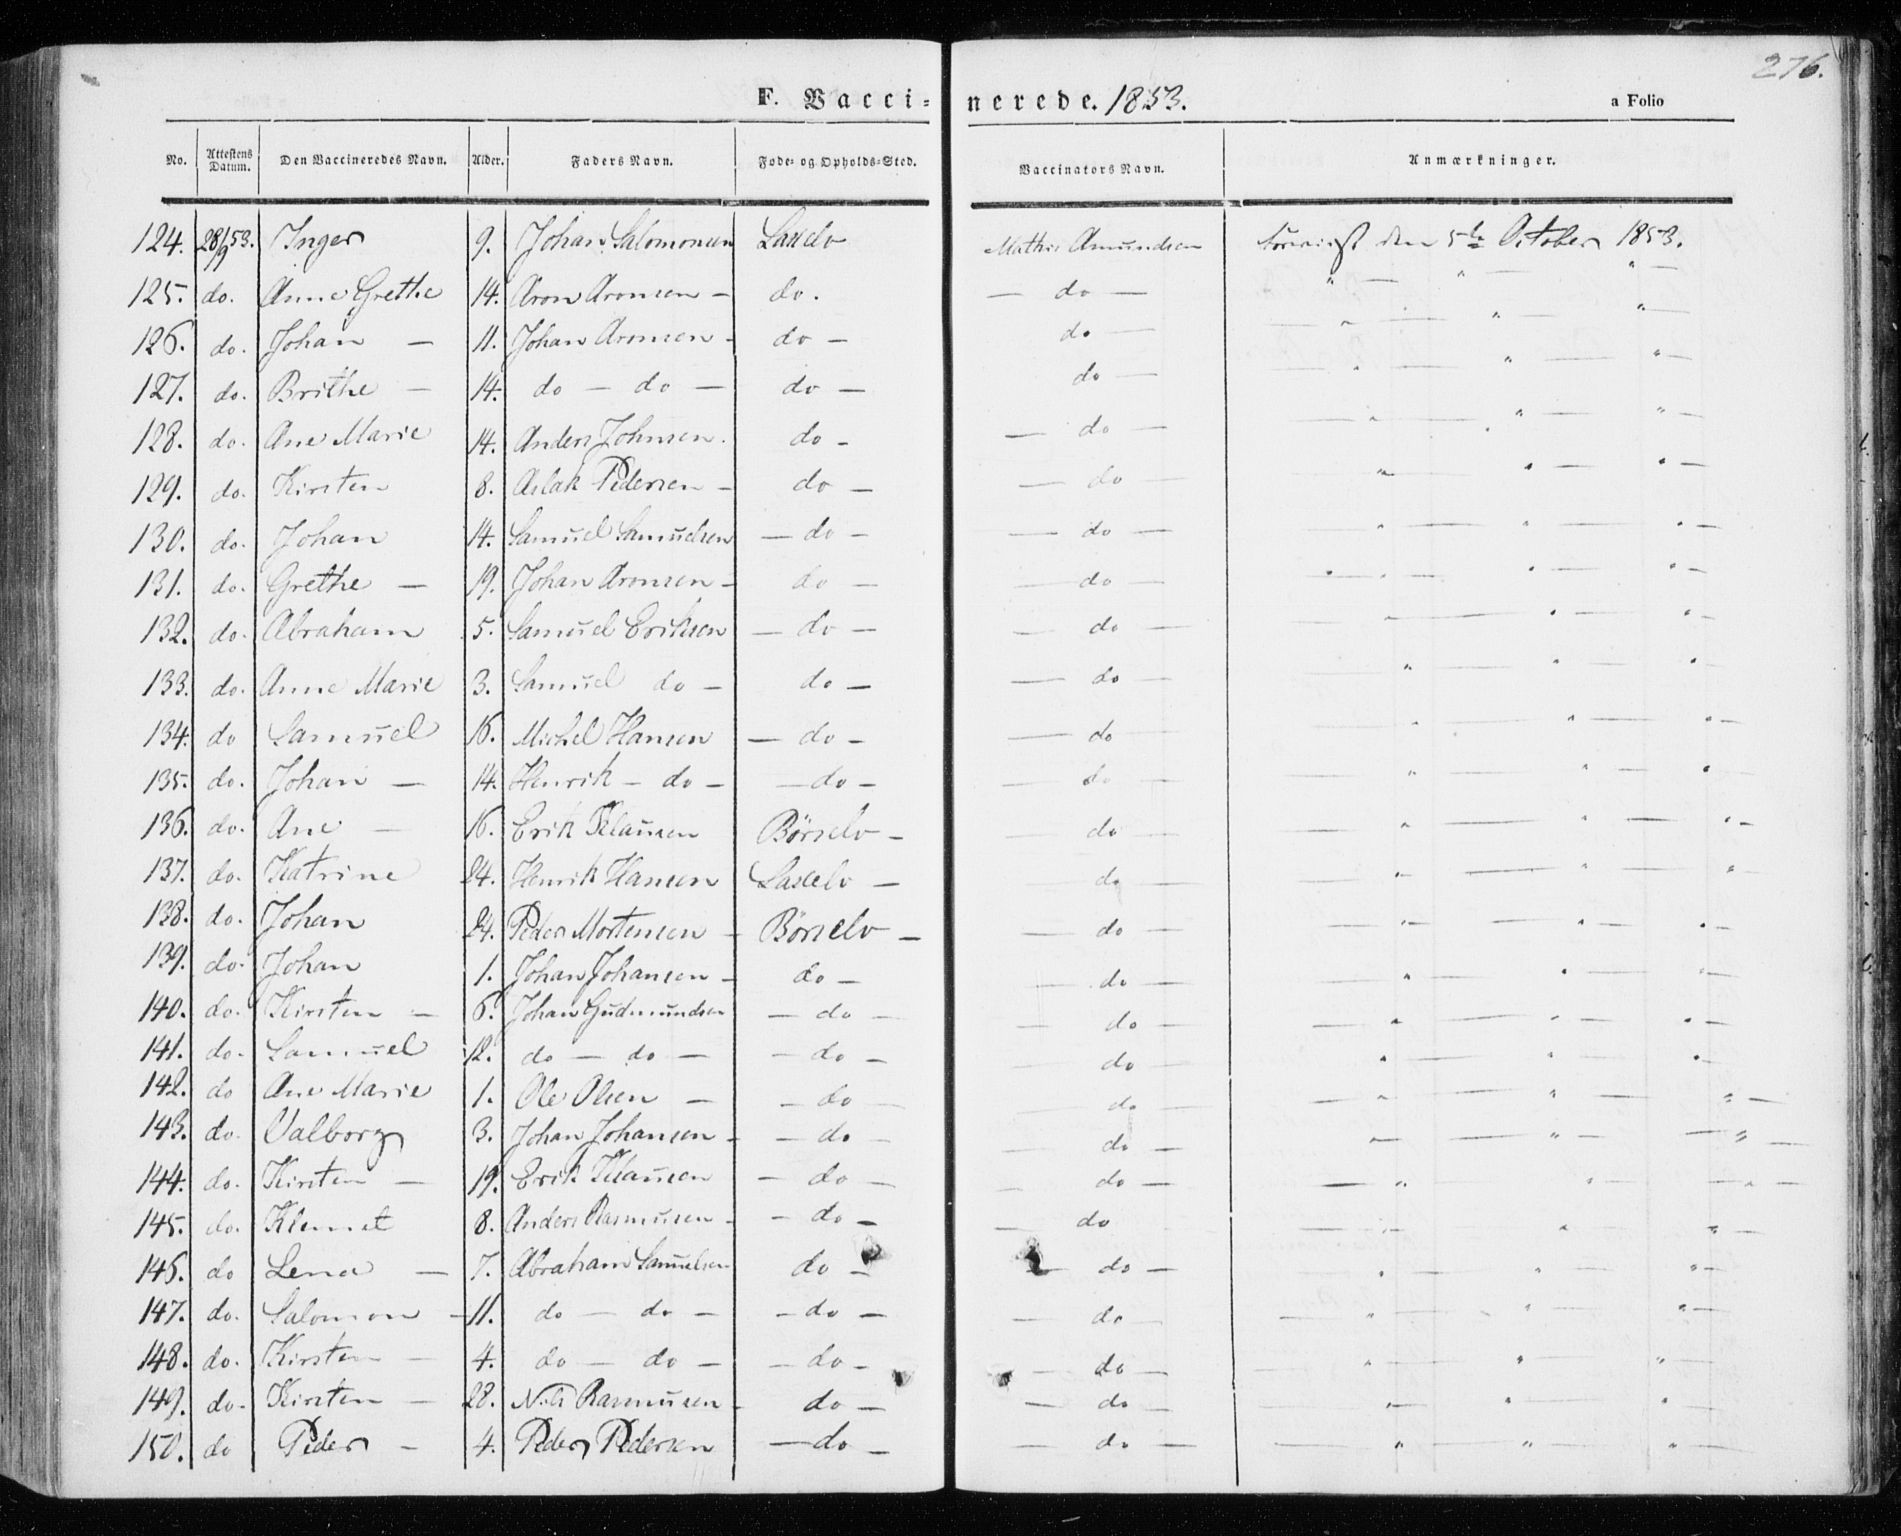 276.
F. Vaccinerede. 1853. a Folio
No. Attestens Datum. Den Vaccineredes Navn. Alder. Faders Navn. Føde- og Opholds-Sted. Vaccinators Navn. Anmærkninger.
124. 28/9 53. Inger 9. Johan Salomonsen Laxelv Mathis Amundsen den 5te October 1853.
125. do. Anne Grethe 14. Aron Aronsen - do. - do - " - " - " -
126. do. Johan - 11. Johan Aronsen - do - do - - " - " - " -
127. do. Brithe - 14. do - do - do - do - - " - " - " -
128. do. Ane Marie 14. Anders Johnsen. do - - do - - " - " - " -
129. do. Kirsten 8. Aslak Pedersen - do - - do - - " - " - " -
130. do. Johan 14. Samuel Samuelsen - do - - do - - " - " - " -
131. do. Grethe - 19. Johan Aronsen - do - - do - " - " - " - " -
132. do. Abraham 5. Samuel Eriksen - do - - do - - " - " - " -
133. do. Anne Marie 3. Samuel do - do - - do - - " - " - " -
134. do Samuel 16. Michel Hansen - do - - do - - " - " - " -
135. do. Johan - 14. Henrik - do - - do - - do - - " - " - "
136. do. Ane - 16. Erik Klausen Börselv - - do - - " - " - " -
137. do. Katrine 24. Henrik Hansen Laxelv - - do - - " - " - " -
138. do. Johan 24. Peder Mortensen - Börselv - - do - - " - " - " -
139. do. Johan 1. Johan Johansen - do - - do - - " - " - " -
140. do. Kirsten - 6. Johan Gudmundsen - do - - do - - " - " - " -
141. do. Samuel 12. do - do - - do - - do - - " - " - " -
142. do Ane Marie 1. Ole Olsen - - do - - do - - " - " - " -
143. do. Valborg 3. Johan Johansen - - do - - do - - " - " - " -
144. do. Kirsten - 19. Erik Klausen - do - - do - - " - " - " -
145. do. Klemet 8. Anders Rasmusen - - do - - do - " - " - " -
146. do Lena - 7. Abraham Samuelsen do - - do - - " - " - " -
147. do. Salomon - 11. do - do - - do - - do - - " - " - " -
148. do. Kirsten - 4. do - do - - do - - do - - " - " - " -
149. do - Kirsten - 28. Nils Rasmusen - do - - do - - " - " - " -
150. do Peder - 4. Peder Pedersen - do - - do - - " - " - " -